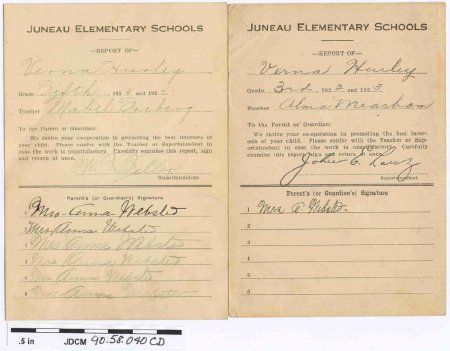 JUNEAU ELEMENTARY SCHOOLS
—REPORT OF—
Verna Hurley
Grade Fifth 192 and 192
Teacher Mabel
To the Parent or Guardian:
We invite your co-operation in promoting the best interests
of your child. Please confer with the Teacher or Superintendent
in case the work is unsatisfactory. Carefully examine this report, sign
and return at once.
Superintendent.
Parent's (or Guardian's) Signature
1 Mrs. Anna Webster
2 Mrs. Anna Webster
3 Mrs. Anna Webster
4 Mrs. Anna Webster
5 Mrs. Anna Webster
6 Mrs. Anna Webster
JUNEAU ELEMENTARY SCHOOLS
—REPORT OF—
Verna Hurley
Grade 3rd 192 2 and 192 3
Teacher Alma
To the Parent or Guardian:
We invite your co-operation in promoting the best inter-
ests of your child. Please confer with the Teacher or Sup-
erintendent in case the work is unsatisfactory. Carefully
examine this report, sign and return at once.
John C.
Superintendent.
Parent's (or Guardian's) Signature
1 Mrs. A. Webster.
2
3
4
5
6
.5 in JDCM 90.58.040 CD